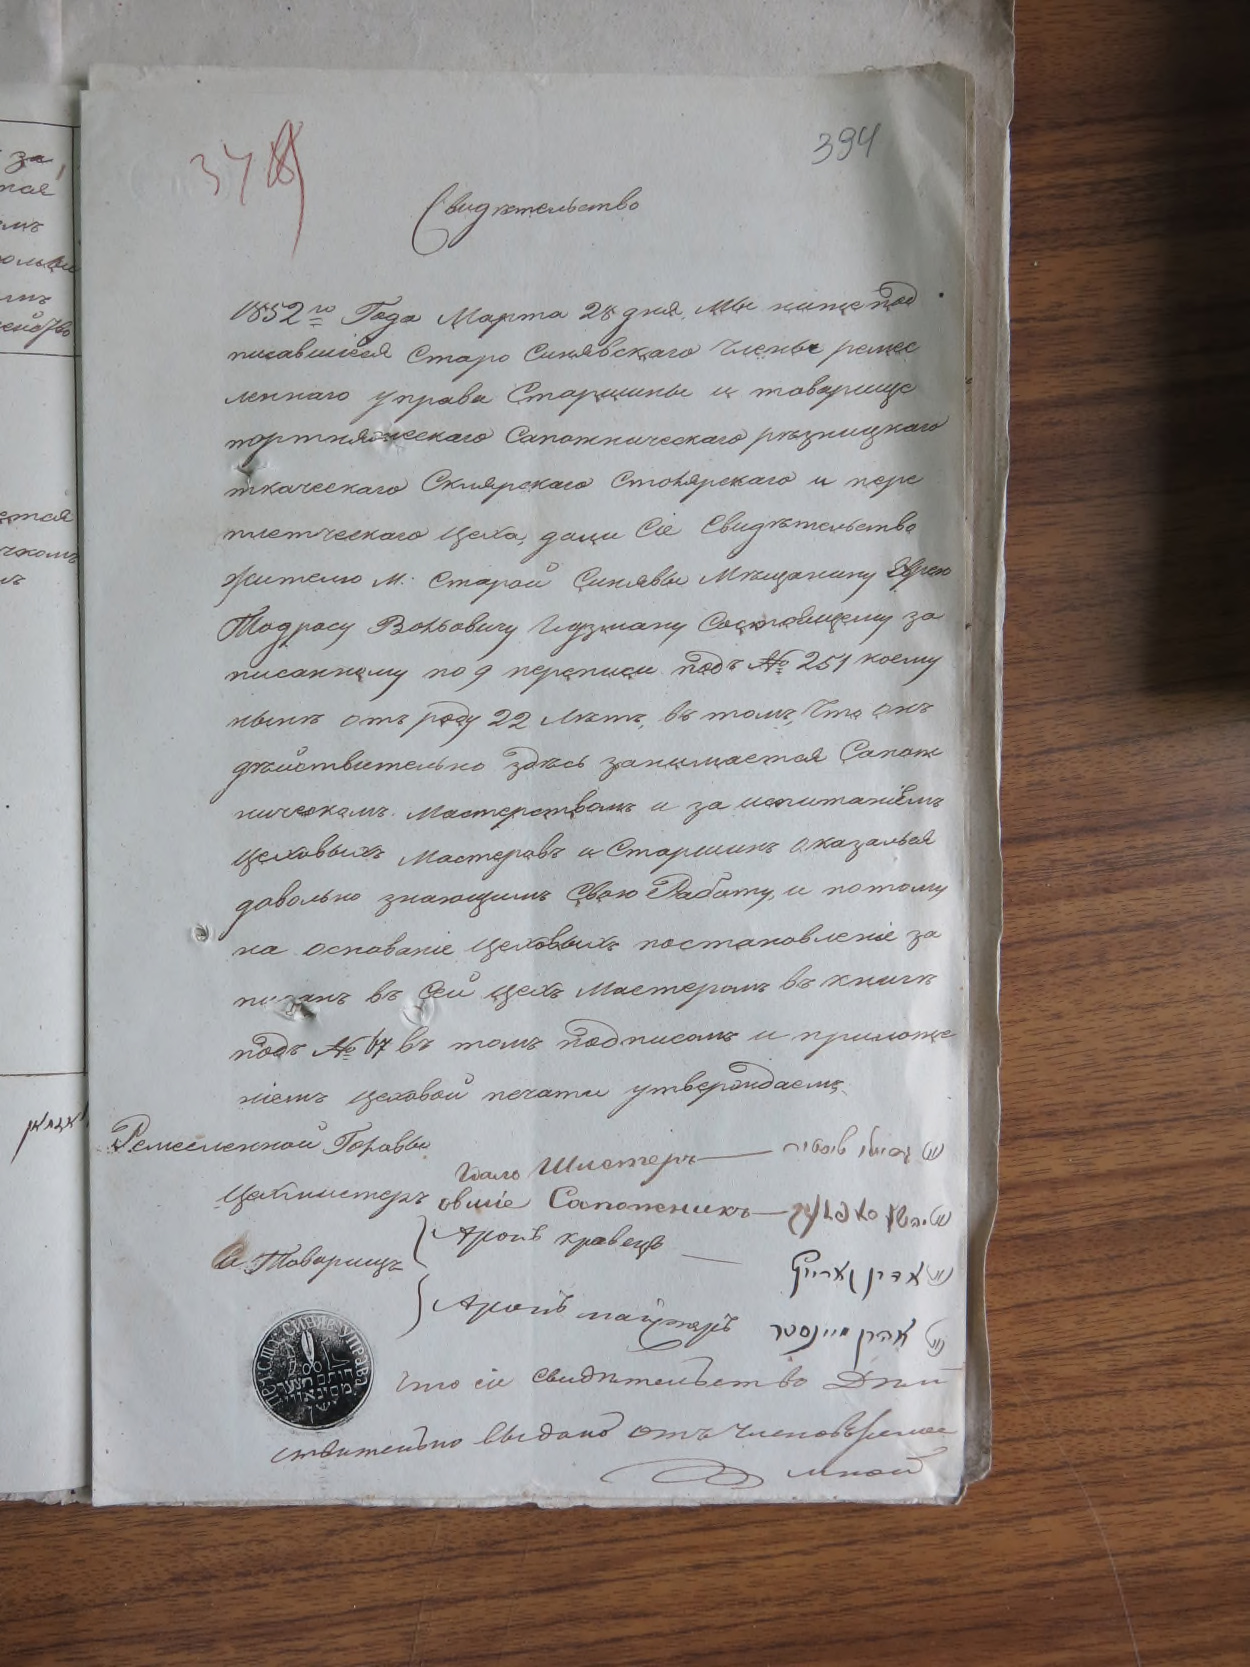 394
Свидѣтельство
1852го Года Марта 28 дня. Мы нижепод
писавшiеся Старо Синявскаго Члены ремес
леннаго управа Старшины и товарище
портняжескаго Сапожническаго рѣзницкаго
ткаческаго Склярскаго Столярскаго и пере
плетческаго Цеха, дали Сiе Свидѣтельство
жителю м. Старой Синявы Мѣщанину Еврею
Тодросу Вольовичу Гузману Состоящему за
писанному по 9 переписи подъ № 251 коему
нынѣ отъ роду 22 лѣтъ, въ томъ, Что онъ
дѣйствительно здѣсь занимается Сапож
ническомъ Мастерствомъ и за испитанiемъ
Цеховыхъ Мастеровъ и Старшинъ оказалься
довольно знающимъ Свою Работу, и потому
на оснаванiе Цеховыхъ постановленiе за
писанъ въ Сей Цехъ Мастеромъ въ книгѣ
подъ № 67 въ томъ подписомъ и приложе
нiемъ Цеховой печати утверждаемъ.
Ремесленной Головы
Шлстеръ
Цехмистеръ Сапожникъ
Товарищъ Аронъ кравецъ
Аронъ
אהרן
Что сiе свидѣтельство Дѣй
ствительно выдано отъ Членовъ ремес
мной
СИНЯВ: УПРАВА